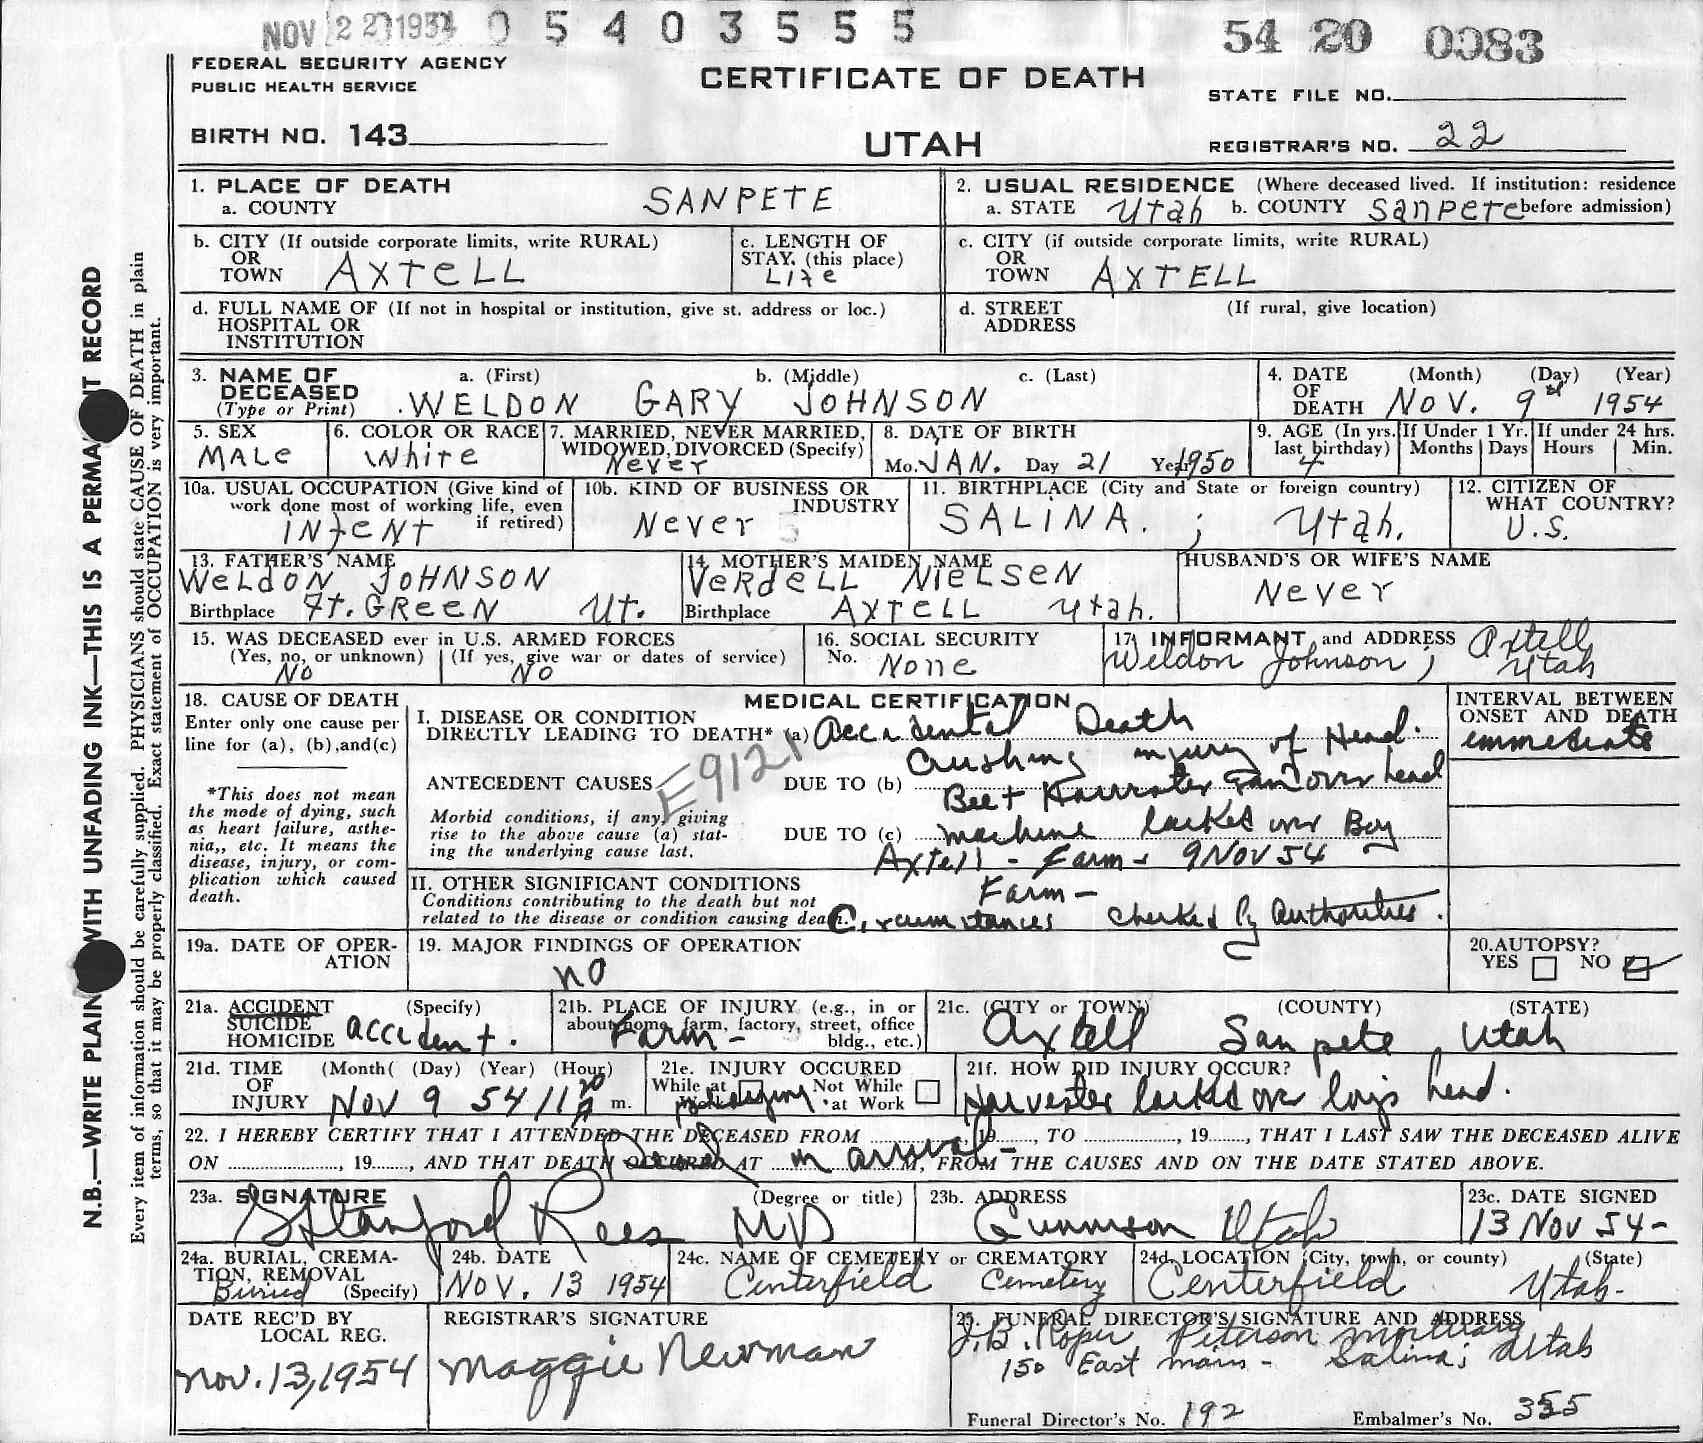 NOV 22 1954 05403555 54 20 0083
FEDERAL SECURITY AGENCY
PUBLIC HEALTH SERVICE
CERTIFICATE OF DEATH
STATE FILE NO.
BIRTH NO. 143
UTAH
REGISTRAR'S NO. 22
1. PLACE OF DEATH
a. COUNTY SANPETE
2. USUAL RESIDENCE (Where deceased lived. If institution: residence
a. STATE Utah b. COUNTY Sanpete before admission)
b. CITY (If outside corporate limits, write RURAL)
OR
TOWN AXTELL
c. LENGTH OF
STAY. (this place)
Life
c. CITY (if outside corporate limits, write RURAL)
OR
TOWN AXTELL
d. FULL NAME OF (If not in hospital or institution, give st. address or loc.)
HOSPITAL OR
INSTITUTION
d. STREET (If rural, give location)
ADDRESS
3. NAME OF a. (First) b. (Middle) c. (Last)
DECEASED
(Type or Print) WELDON GARY JOHNSON
4. DATE (Month) (Day) (Year)
OF
DEATH NOV. 9th 1954
5. SEX
MALe
6. COLOR OR RACE
White
7. MARRIED, NEVER MARRIED,
WIDOWED, DIVORCED (Specify)
Never
8. DATE OF BIRTH
Mo. JAN. Day 21 Year 1950
9. AGE (In yrs. last birthday) 4
If Under 1 Yr. Months Days
If under 24 hrs. Hours Min.
10a. USUAL OCCUPATION (Give kind of
work done most of working life, even
if retired)
INfeNT
10b. KIND OF BUSINESS OR
INDUSTRY
Never
11. BIRTHPLACE (City and State or foreign country)
SALINA. ; Utah.
12. CITIZEN OF
WHAT COUNTRY?
U.S.
13. FATHER'S NAME
WeLDON JOHNSON
Birthplace Ft. GReeN Ut.
14. MOTHER'S MAIDEN NAME
VeRDeLL NIeLSeN
Birthplace AXTeLL Utah.
HUSBAND'S OR WIFE'S NAME
Never
15. WAS DECEASED ever in U.S. ARMED FORCES
(Yes, no, or unknown) (If yes, give war or dates of service)
No No
16. SOCIAL SECURITY
No. None
17. INFORMANT and ADDRESS Axtell
Weldon Johnson; Utah
18. CAUSE OF DEATH
Enter only one cause per
line for (a), (b), and(c)
*This does not mean
the mode of dying, such
as heart failure, asthe-
nia,, etc. It means the
disease, injury, or com-
plication which caused
death.
MEDICAL CERTIFICATION
I. DISEASE OR CONDITION
DIRECTLY LEADING TO DEATH* (a) Accidental Death
E9121
Crushing injury of Head.
ANTECEDENT CAUSES DUE TO (b)
Beet Harvester ran over head
Morbid conditions, if any, giving
rise to the above cause (a) stat-
ing the underlying cause last.
DUE TO (c) machine backed over Boy
Axtell - Farm - 9 Nov 54
II. OTHER SIGNIFICANT CONDITIONS
Conditions contributing to the death but not
related to the disease or condition causing death.
Farm -
Circumstances checked by Authorities.
INTERVAL BETWEEN
ONSET AND DEATH
immediate
19a. DATE OF OPER-
ATION
19. MAJOR FINDINGS OF OPERATION
no
20. AUTOPSY?
YES NO
21a. ACCIDENT (Specify)
SUICIDE
HOMICIDE accident.
21b. PLACE OF INJURY (e.g., in or
about home, farm, factory, street, office
bldg., etc.)
Farm -
21c. (CITY or TOWN) (COUNTY) (STATE)
Axtell San pete, Utah
21d. TIME (Month( (Day) (Year) (Hour)
OF
INJURY Nov 9 54 11 20 A m.
21e. INJURY OCCURED
While at Work Not While at Work
playing
21f. HOW DID INJURY OCCUR?
Harvester backed over boys head.
22. I HEREBY CERTIFY THAT I ATTENDED THE DECEASED FROM , 19 , TO , 19 , THAT I LAST SAW THE DECEASED ALIVE
ON , 19 , AND THAT DEATH OCCURED AT on arrival M, FROM THE CAUSES AND ON THE DATE STATED ABOVE.
23a. SIGNATURE (Degree or title)
G Stanford Rees MD
23b. ADDRESS
Gunnison Utah
23c. DATE SIGNED
13 Nov 54-
24a. BURIAL, CREMA-
TION, REMOVAL
Buried (Specify)
24b. DATE
NOV. 13 1954
24c. NAME OF CEMETERY or CREMATORY
Centerfield Cemetery
24d. LOCATION (City, town, or county) (State)
Centerfield Utah.
DATE REC'D BY
LOCAL REG.
Nov. 13, 1954
REGISTRAR'S SIGNATURE
Maggie Newman
25. FUNERAL DIRECTOR'S SIGNATURE AND ADDRESS
J.B. Roper Peterson Mortuary
150 East main - Salina; Utah
Funeral Director's No. 192 Embalmer's No. 355
N.B.—WRITE PLAIN WITH UNFADING INK—THIS IS A PERMANENT RECORD
Every item of information should be carefully supplied. PHYSICIANS should state CAUSE OF DEATH in plain
terms, so that it may be properly classified. Exact statement of OCCUPATION is very important.